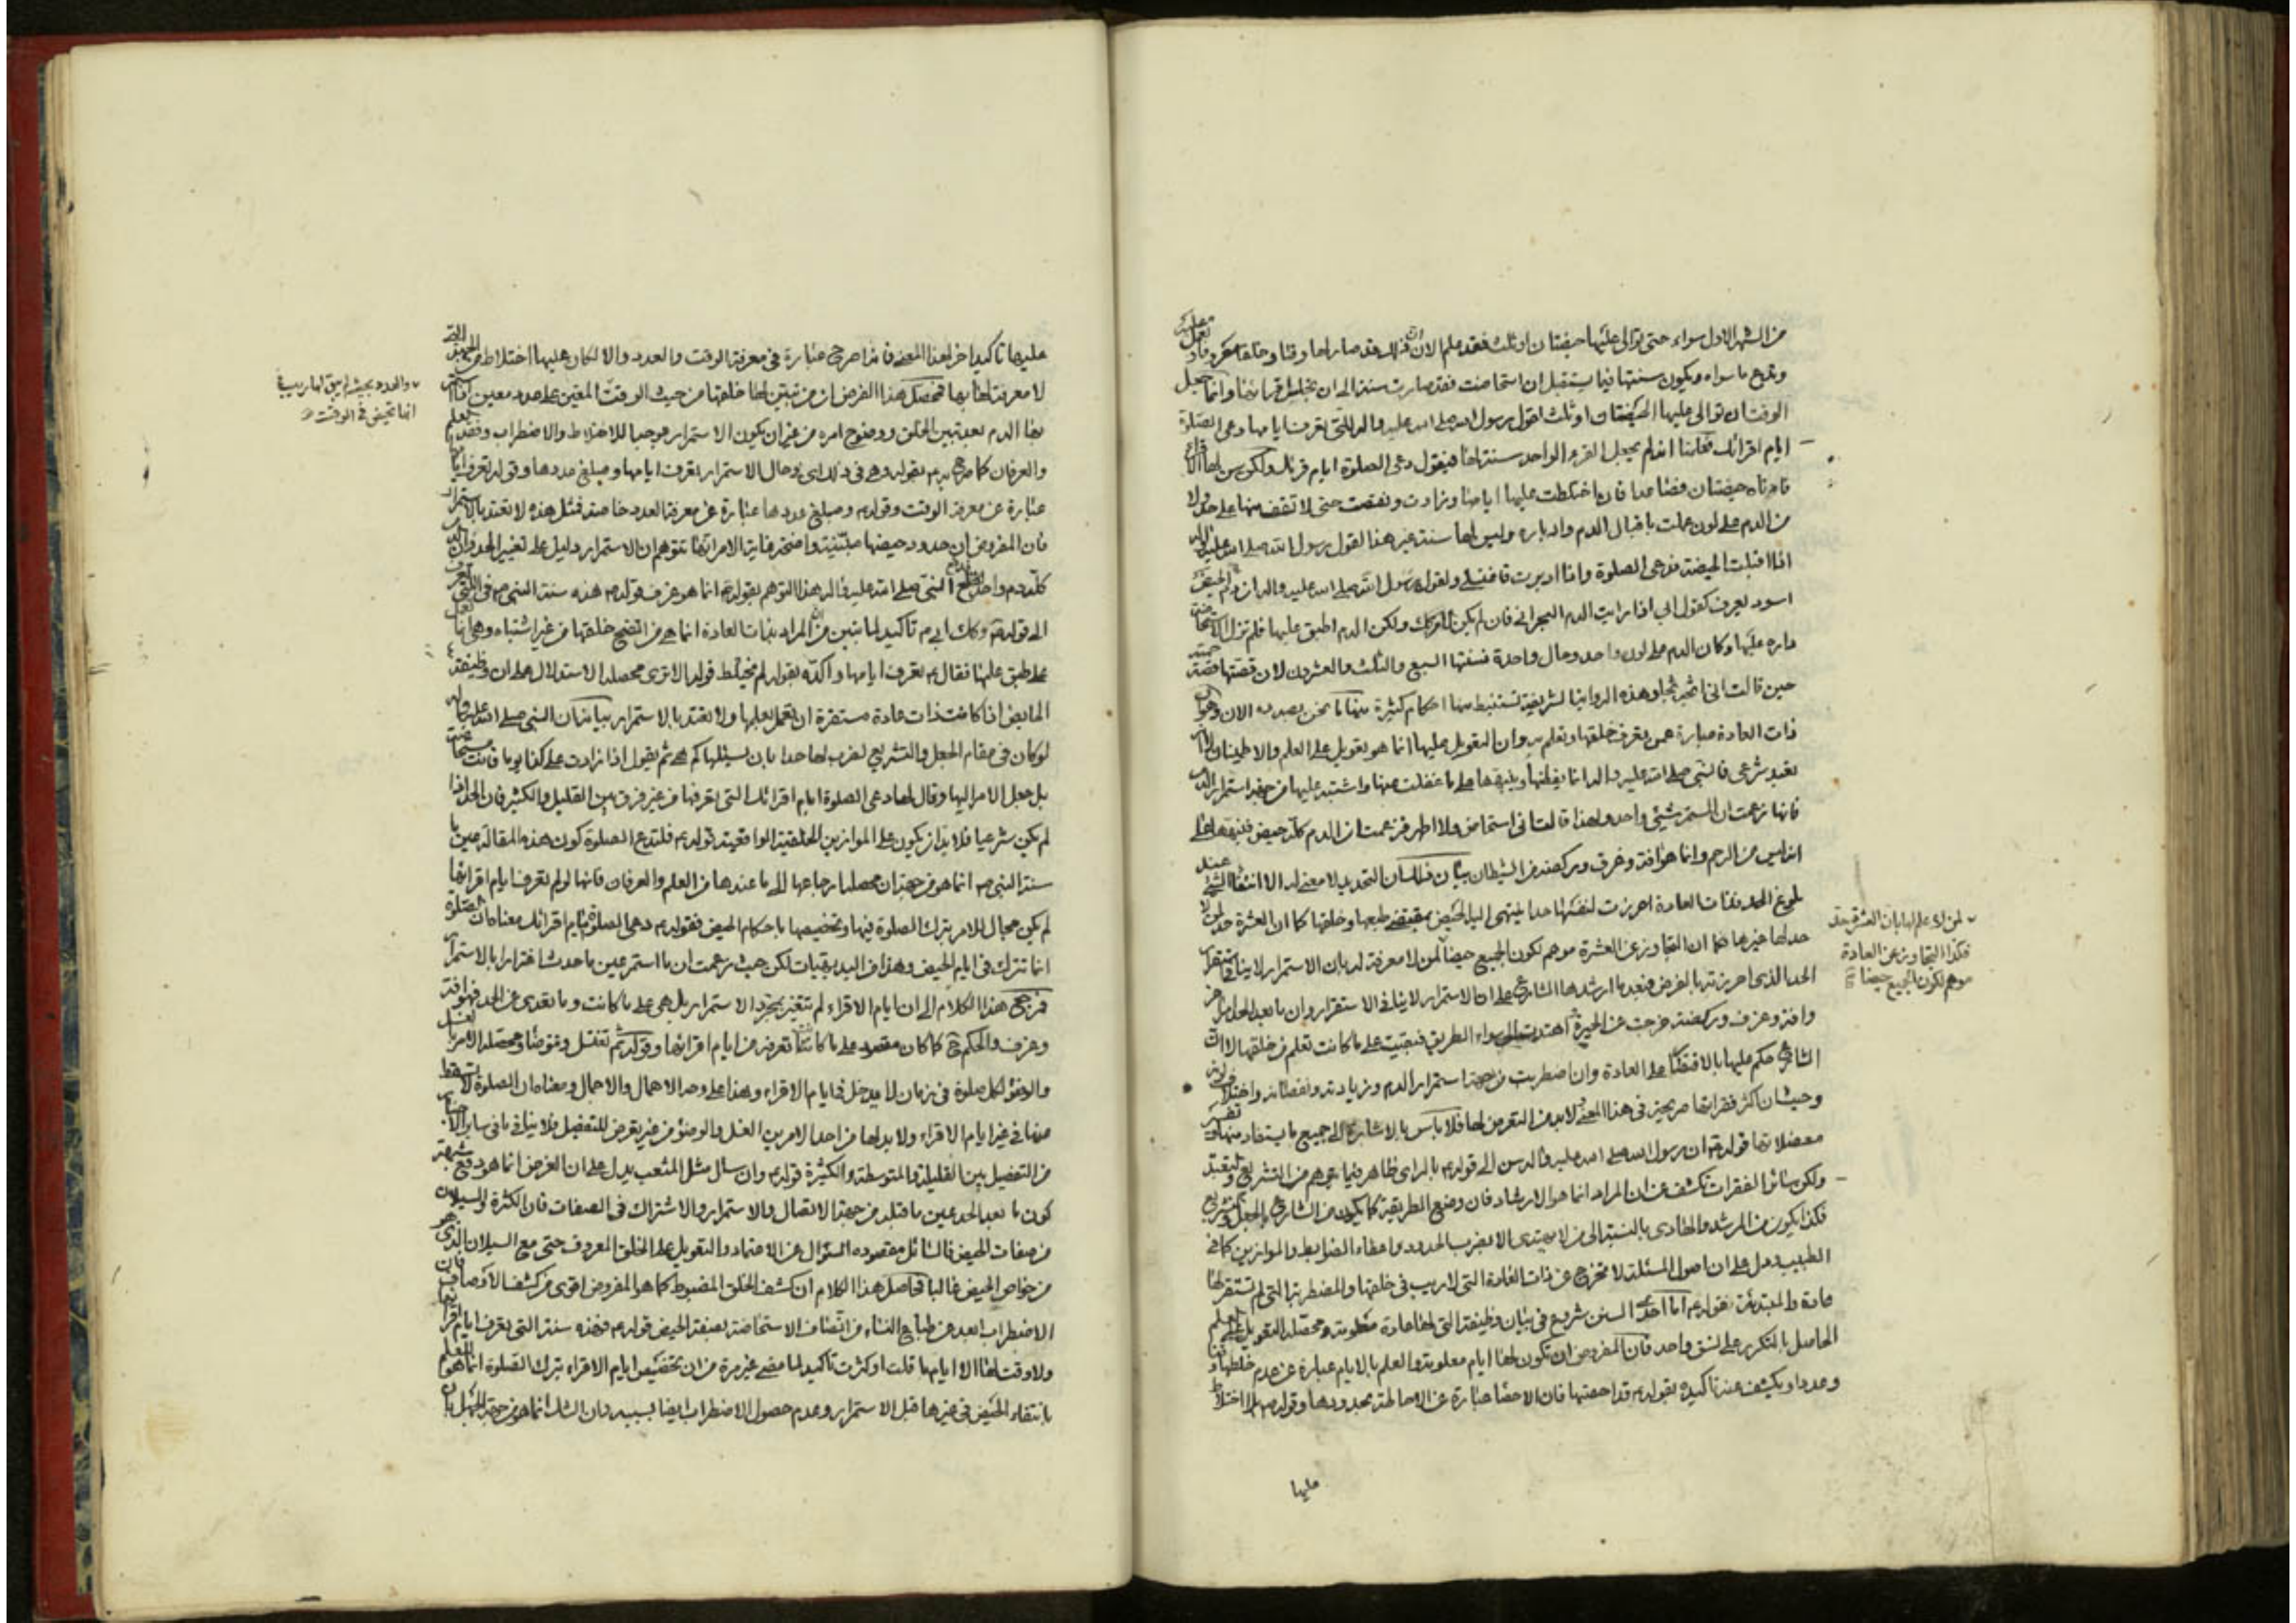 من الشهر الاول سواء حتى توالى عليها حيضتان او ثلث فقد علم الان ان ذلك قد صار لها وقتا وخلقا معروفا تعمل عليه
وتدع ما سواه وتكون سنتها فيما يستقبل ان استحاضت فقد صارت سنة الى ان تجلس اقرائها وانما جعل
الوقت ان توالى عليها الحيضتان او ثلث لقول رسول الله صلى الله عليه واله للتى تعرف ايامها دعى الصلوة
ايام اقرائك فعلمنا انه لم يجعل القرء الواحد سنة لها فيقول دعى الصلوة ايام قرئك ولكن سن لها الاقراء
فادناه حيضتان فصاعدا فان اختلطت عليها ايامها وزادت ونقصت حتى لا تقف منها على حد ولا
من الدم على لون عملت باقبال الدم وادباره وليس لها سنة غير هذا لقول رسول الله صلى الله عليه واله
اذا اقبلت الحيضة فدعى الصلوة واذا ادبرت فاغتسلى ولقول رسول الله صلى الله عليه واله ان دم الحيض
اسود يعرف كقول ابى اذا رايت الدم البحرانى فان لم يكن الامر كك ولكن الدم اطبق عليها فلم تزل الاستحاضة
داره عليها وكان الدم على لون واحد وحال واحدة فسنتها السبع والثلث والعشرون لان قصتها قصة حمنة
حين قالت انى اثجه ثجا وهذه الرواية الشريفة تستنبط منها احكام كثيرة منها ما نحن بصدده الان وهو ان
ذات العادة عبارة عمن يعرف خلقها وتعلم به وان التعويل عليها انما هو تعويل على العلم والاطمينان لا
تعبد شرعى فالنبى صلى الله عليه واله انما نبهها على ما غفلت عنها واشتبه عليها من جهة استمرار الدم
فانها زعمت ان المستمر شيئ واحد ولهذا قالت انى استحاض ولا اطهر فزعمت ان الدم كله حيض فنبهها على
انه ليس من الرحم وانما هو افة وعرف وركضة من الشيطان بيان ذلك ان التحديد لا معنى له الا انتفاء الشيئ عند
بلوغ الحد فذات العادة احرزت لنفسها حدا ينتهى اليه الحيض بمقتضى طبعها وخلقها كما ان العشرة حد لمن لا
حد لها غيرها فكما ان التجاوز عن العشرة موهم لكون الجميع حيضا لمن لا معرفة له بان الاستمرار لا ينافى
الحد الذى احرزته بالفرض فبعد ما ارشدها الشارع على ان الاستمرار لا ينافى الاستقرار وان ما بعد الحد
وافة وعرف وركضة خرجت عن الحيرة واهتدت الى سواء الطريق فبقيت على ما كانت تعلم من خلقها لا ان
الشارع حكم عليها بالاقتصار على العادة وان اضطربت من جهة استمرار الدم وزيادته ونقصانه واختلاف
وحيث ان اكثر فقراتها صريحة فى هذا المعنى لابد من التعرض لها فلا باس بالاشارة الى جميع ما يستفاد منها
معضلاتها قوله ع ان رسول الله صلى الله عليه واله سن الى قوله بالراى ظاهر فيما توهم من التشريع والتعبد
ولكن سائر الفقرات تكشف عن ان المراد انما هو الارشاد فان وضع الطريقة كما يكون من الشارع بالجعل والتشريع
فكذا يكون من المرشد والهادى بالنسبة الى من لا يهتدى الا بضرب الحدود واعطاء الضوابط والموازين كما فى
الطبيب ويدل على ان اصول المسئلة لا تخرج عن ذات العادة التى لا ريب فى خلقها والمضطربة التى لم تستقر لها
عادة والمبتدئة قوله ع اما احدى السنن شروع فى بيان وظيفة التى لها عادة معلومة ومحصله التعويل على العلم
الحاصل بالتكرر على نسق واحد فان المفروض ان تكون لها ايام معلومة والعلم بالايام عبارة عن عدم خلطها وقتا
وعددا ويكشف عنه تاكيده بقوله ع قد احصتها فان الاحصاء عبارة عن الاحاطة بحدودها وقوله ع بلا اختلاط
عليها
لمن لا علم لها بان العشرة حد
فكذا التجاوز عن العادة
موهم لكون الجميع حيضا
عليها تاكيدا اخر لهذا المعنى فانه صريح عبارة فى معرفة الوقت والعدد والا لكان عليها اختلاط من الحيض التى
لا معرفة لها بها فمحصل هذا الفرض ان من تبين لها خلقها من حيث الوقت المعين على عدد معين
بها الدم بعد تبين الخلق ووضوح امره من غير ان يكون الاستمرار موجبا للاختلاط والاضطراب وفقد العلم
والعرفان كما صرح به ع بقوله وهى فى ذلك اى وحال الاستمرار تعرف ايامها ومبلغ عددها وقوله تعرف ايامها
عبارة عن معرفة الوقت وقوله ع ومبلغ عددها عبارة عن معرفة العدد خاصة فمثل هذه لا تعتد بالاستمرار
فان المفروض ان حدود حيضها مبينة واضحة غاية الامر انها تتوهم ان الاستمرار دليل على تغير الحد وان الدم
كله دم واحد النبى صلى الله عليه واله هذا التوهم بقوله ع انما هو عرف قوله ع هذه سنة النبى ص فى التى تعرف
الى قوله ع وكك ابى ع تاكيد لما تبين من ان المراد بذات العادة انما هى من اتضح خلقها من غير اشتباه وهى انما تعمل
على طبق علمها فقال ع تعرف ايامها واكده بقوله لم يختلط قوله الا ترى محصله الاستدلال على ان وظيفة
الحايض اذا كانت ذات عادة مستقرة ان تعمل بعلمها ولا تعتد بالاستمرار بيانه ان النبى صلى الله عليه واله
لو كان فى مقام الجعل والتشريع لضرب لها حدا بان يسئلها كم هى ثم يقول اذا زادت على كذا يوما فانت مستحاضة
بل جعل الامر اليها وقال لها دعى الصلوة ايام اقرائك التى تعرفها من غير فرق بين القليل والكثير فان الحد اذا
لم يكن شرعيا فلابد ان يكون على الموازين الخلقية الواقعية قوله ع فلتدع الصلوة كون هذه المقالة عين
سنة النبى ص انما هو من جهة ان محصلها ارجاعها الى ما عندها من العلم والعرفان فانها لو لم تعرف ايام اقرائها
لم يكن مجال للامر بترك الصلوة فيها وتخصيصها باحكام الحيض فقوله ع دعى الصلوة ايام اقرائك معناه ان الصلوة
انما تترك فى ايام الحيض وهذا من البديهيات لكن حيث زعمت ان ما استمر عين ما حدث اغترارا بالاستمرار
فمرجع هذا الكلام الى ان ايام الاقراء لم تتغير بمجرد الاستمرار بل هى على ما كانت وما تعدى عن الحد فهو افة
وعرف والحكم ح كما كان مقصور على ما كانت تعرفه من ايام اقرائها وقوله ع ثم تغتسل وتتوضأ ومحصله الامر بالغسل
والوضوء لكل صلوة فى زمان لا يدخل فى ايام الاقراء وهذا على وجه الاهمال والاجمال ومعناه ان الصلوة لا تسقط
عنها فى غير ايام الاقراء ولابد لها من احد الامرين الغسل والوضوء من غير تعرض للتفصيل فلا ينافى ما فى ساير الاخبار
من التفصيل بين القليلة والمتوسطة والكثيرة قوله ع وان سال مثل المثعب يدل على ان الغرض انما هو دفع شبهة
كون ما بعد الحد عين ما قبله من جهة الاتصال والاستمرار والاشتراك فى الصفات فان الكثرة والسيلان
من صفات الحيض فالسائل مقصوده السؤال عن الاعتماد والتعويل على الخلق المعروف حتى مع السيلان الذى هو
من خواص الحيض غالبا فحاصل هذا الكلام ان كشف الخلق المضبوط كما هو المفروض اقوى من كشف الاوصاف فان
الاضطراب ابعد من طباع النساء من اتصاف الاستحاضة بصفة الحيض قوله ع فهذه سنة التى تعرف ايام اقرائها
ولا وقت لها الا ايامها قلت او كثرت تاكيد لما مضى غير مرة من ان تخصيص ايام الاقراء بترك الصلوة انما هو للعلم
بانتفاء الحيض فى غيرها قبل الاستمرار وعدم حصول الاضطراب ايضا بسببه وان الشك انما هو من جهة الجهل بان
والعدد بحيث لم يبق لها ريب فى
انها تحيض فى الوقت